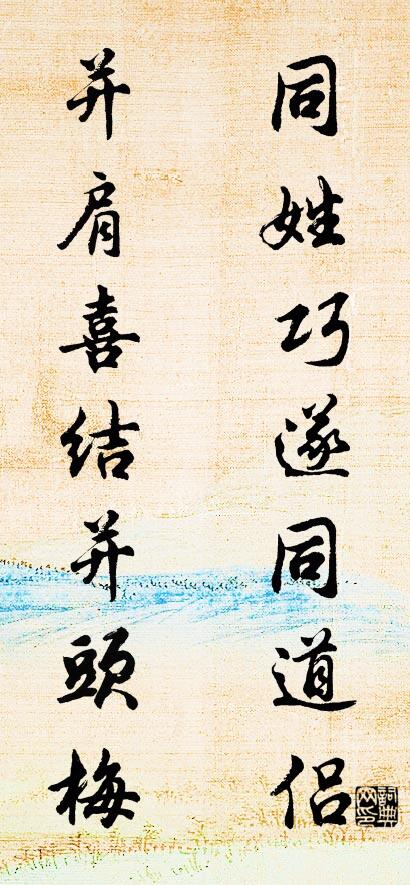 同姓巧遂同道侣
并肩喜结并頭梅
詞典网印